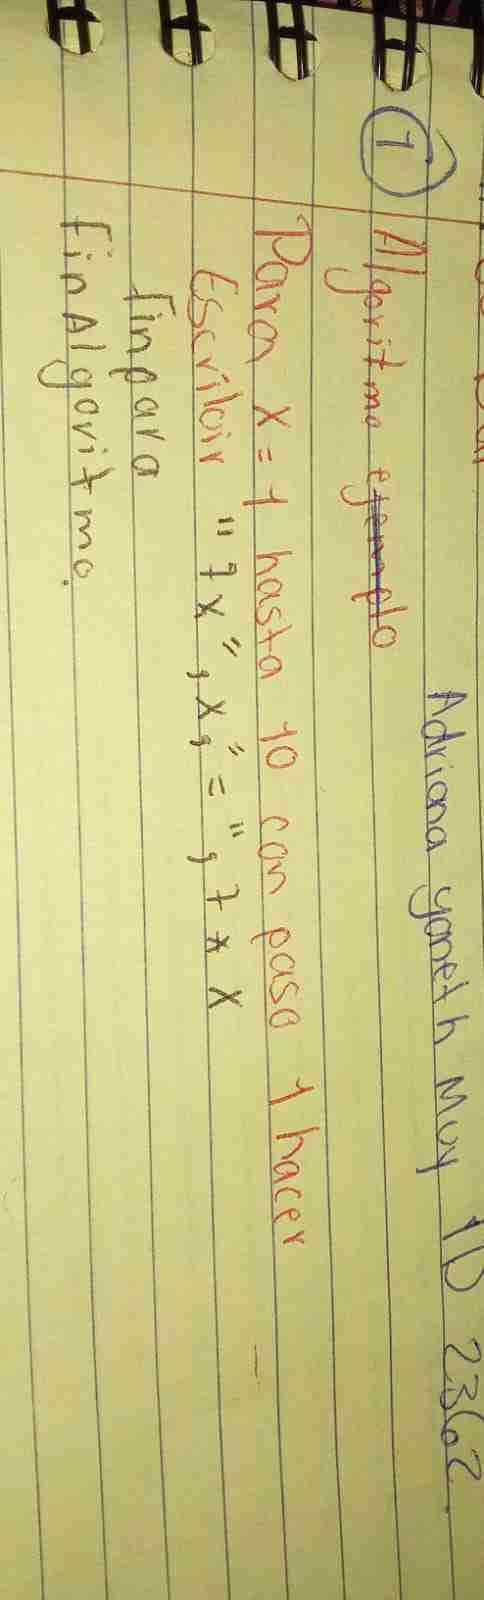 Adriana yaneth Muy 1D 2362.
1
Algoritmo ejemplo
Para x = 1 hasta 10 con paso 1 hacer
Escribir "7x", x, "=", 7 * x
finpara
finAlgoritmo.